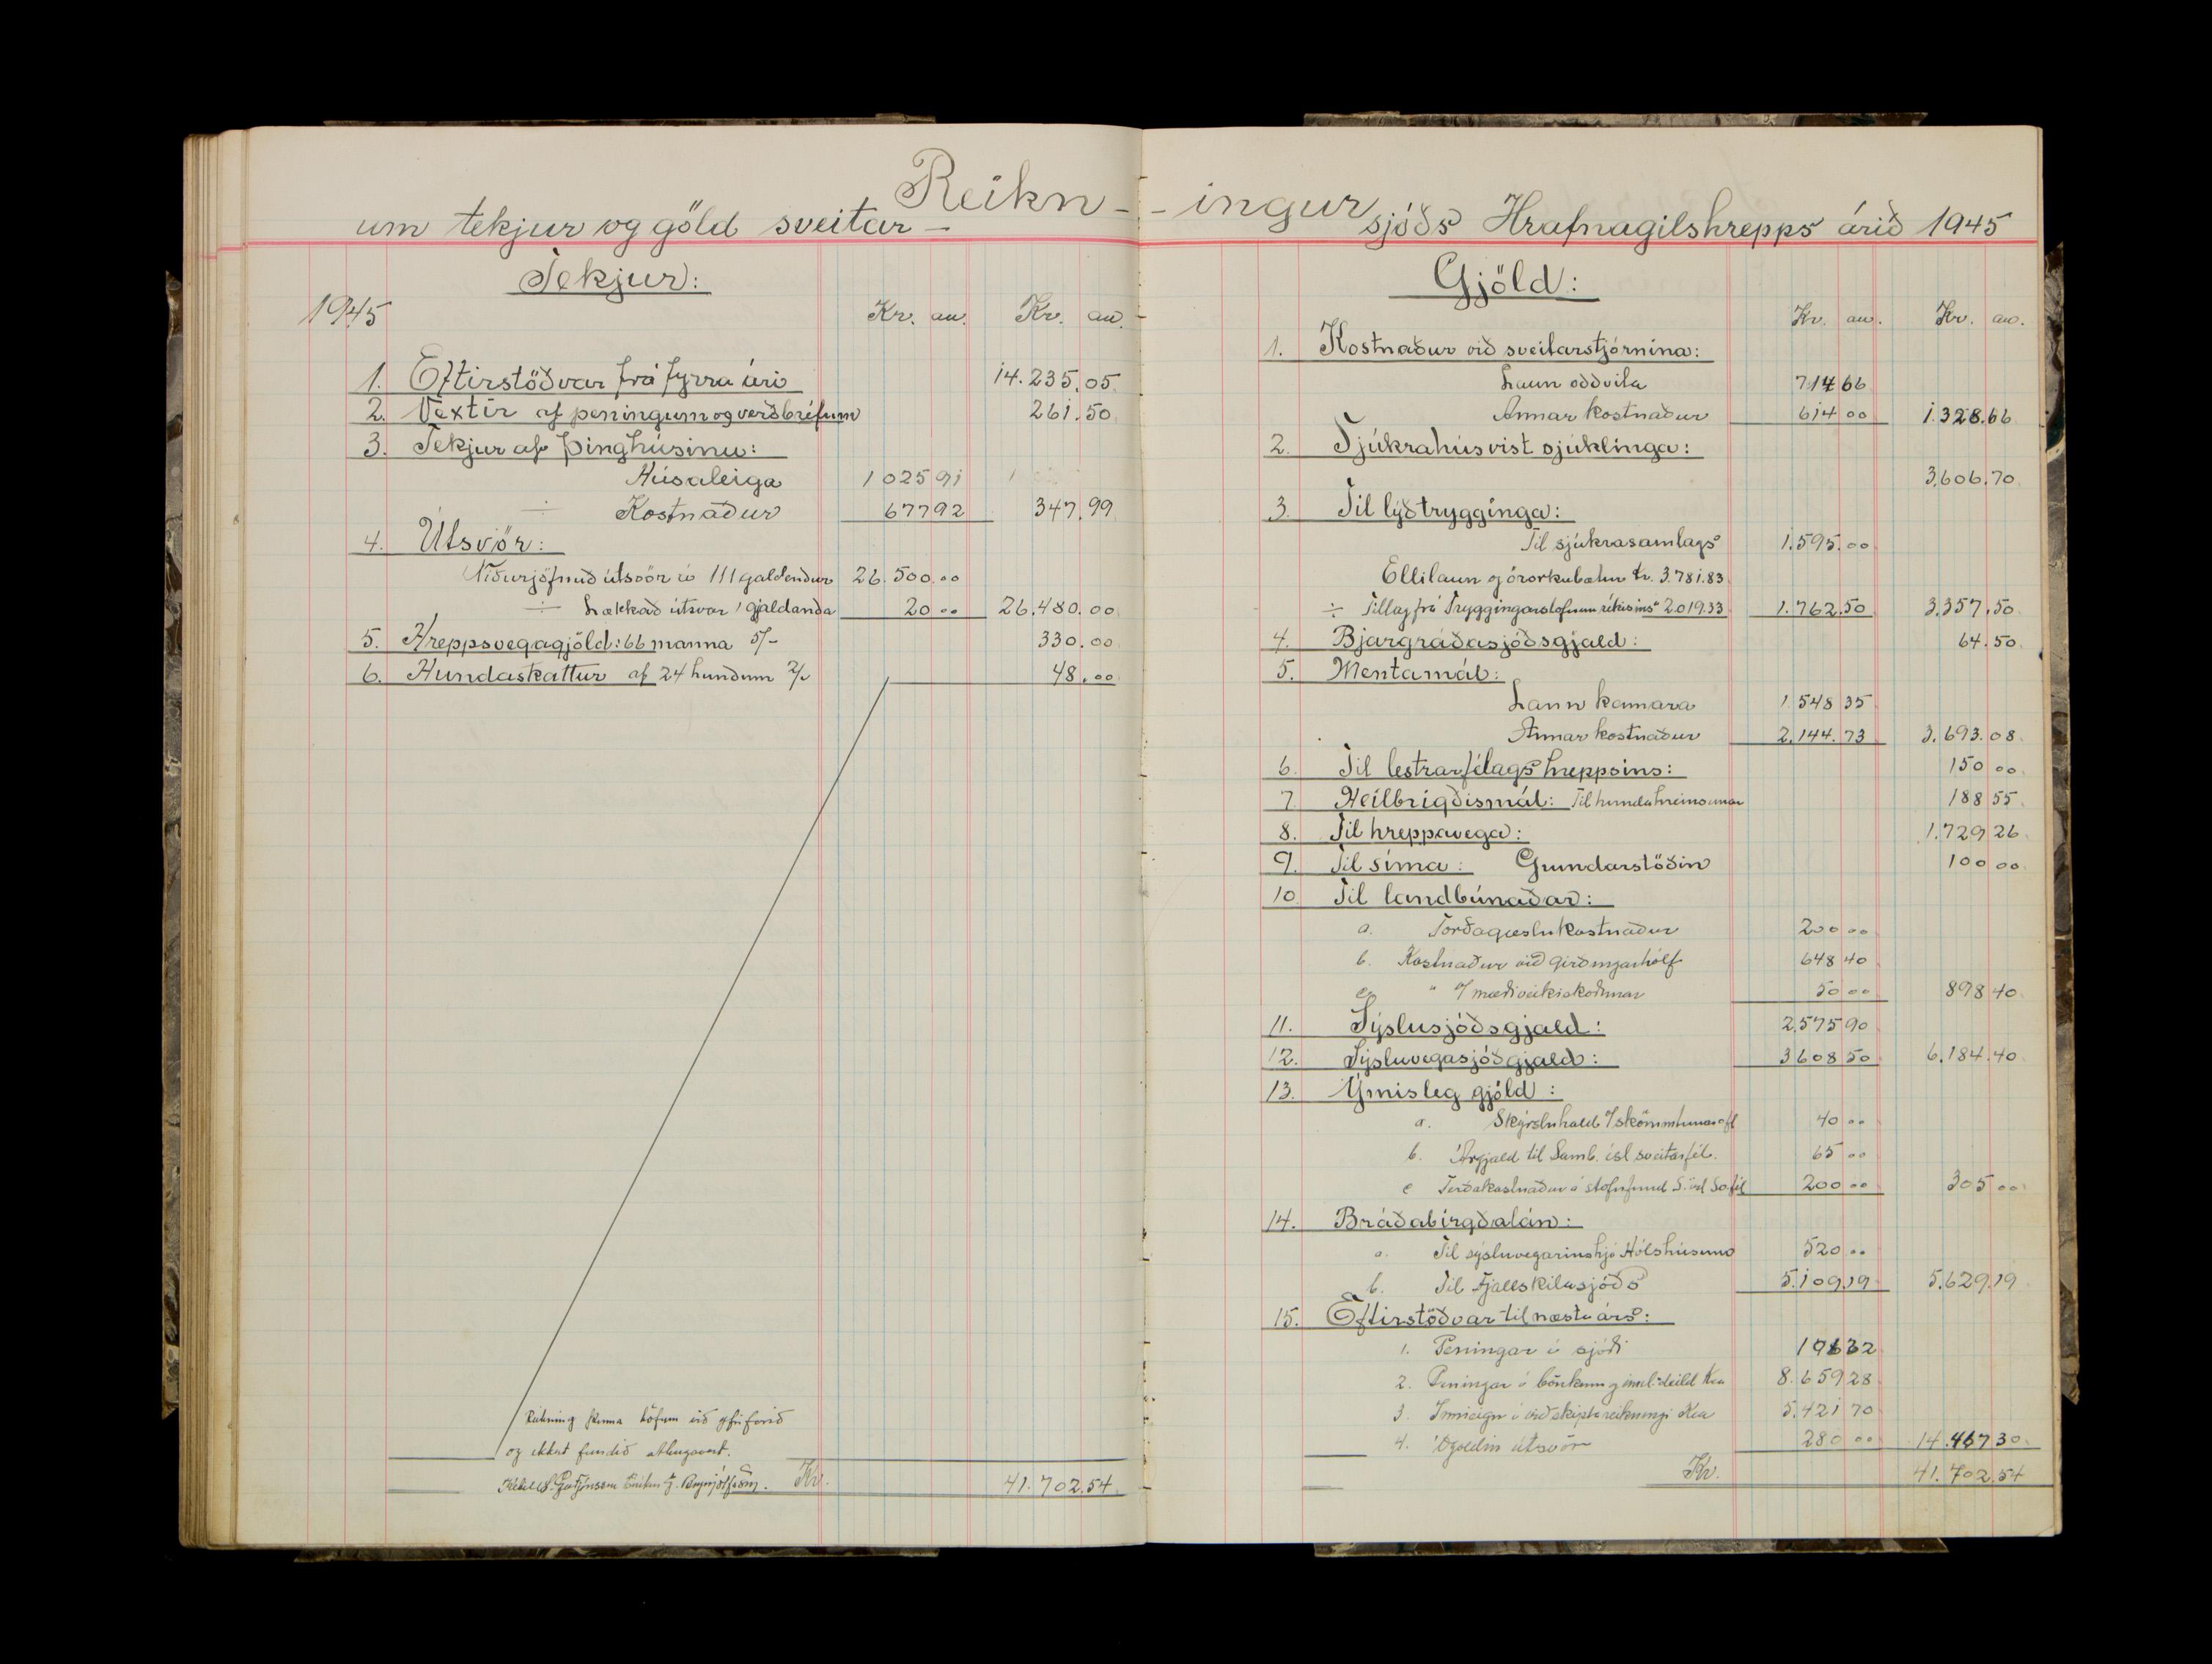 Reikn- -ingur
um tekjur og göld sveitar- sjóðs Hrafnagilshrepps árið 1945
Tekjur:
1945 Kr. au. Kr. au.
1. Eftirstöðvar frá fyrra ári 14.235.05
2. Vextir af peningum og verðbréfum 261.50
3. Tekjur af þinghúsinu:
Húsaleiga 1025 91
÷ Kostnaður 677 92 347.99
4. Útsvör:
Niðurjöfnuð útsvör á 111 galdendur 26.500.00
÷ Lækkað útsvar 1 gjaldanda 20 00 26.480.00
5. Hreppsvegagjöld: 66 manna 5/- 330.00
6. Hundaskattur af 24 hundum 2/- 48.00
og ekkert fundið athugavert.
Kr. 41.702.54
Gjöld:
Kr. au. Kr. au.
1. Kostnaður við sveitarstjórnina:
Laun oddvita 714 66
Annar kostnaður 614 00 1.328.66
2. Sjúkrahúsvist sjúklinga:
3.606.70
3. Til lýðtrygginga:
Til sjúkrasamlags 1.595.00
Ellilaun og örorkubætur kr. 3.781.83
÷ Tillag frá Tryggingarstofnun ríkisins 2.019.33 1.762.50 3.357.50
4. Bjargráðasjóðsgjald: 64.50
5. Mentamál:
Laun kennara 1.548 35
Annar kostnaður 2.144.73 3.693.08
6. Til lestrarfélags hreppsins: 150 00
7. Heilbrigðismál: Til hundahreinsunar 188 55
8. Til hreppavega: 1.729 26
9. Til síma: Grundarstöðin 100 00
10. Til landbúnaðar:
a. Forðagæslukostnaður 200 00
b. Kostnaður við girðingarhólf 648 40
c. " v/ mæðiveikiskoðunar 50 00 898 40
11. Sýslusjóðsgjald: 2.575 90
12. Sýsluvegasjóðsgjald: 3608 50 6.184.40
13. Ýmisleg gjöld:
a. Skýrsluhald v/ skömmtunar ofl 40 00
b. Árgjald til Samb. ísl sveitarfél. 65 00
c Ferðakostnaður á stofnfund S. ísl 200 00 305 00
14. Bráðabirgðalán:
a. Til sýsluvegarins hjá Hólshúsum 520 00
b. Til Fjallskilasjóðs 5.109.19 5.629.19
15. Eftirstöðvar til næsta árs:
1. Peningar í sjóði
2. Peningar í bönkum og innl.deild Kea 8.659 28
3. Inneign í viðskiptareikningi Kea 5.421 70
4. Ógoldin útsvör 280 00 14.467 30
Kr. 41.702.54